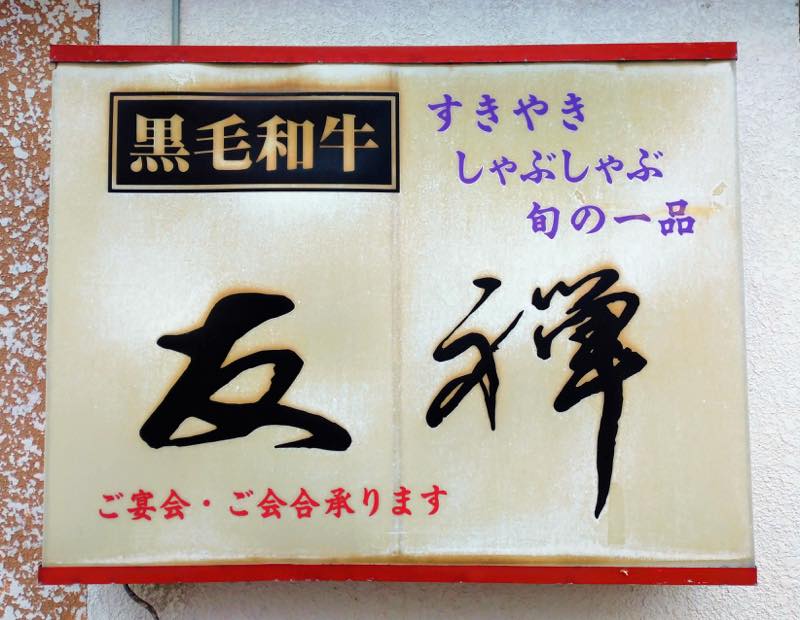 黒毛和牛
すきやき
しゃぶしゃぶ
旬の一品
友禅
ご宴会・ご会合承ります